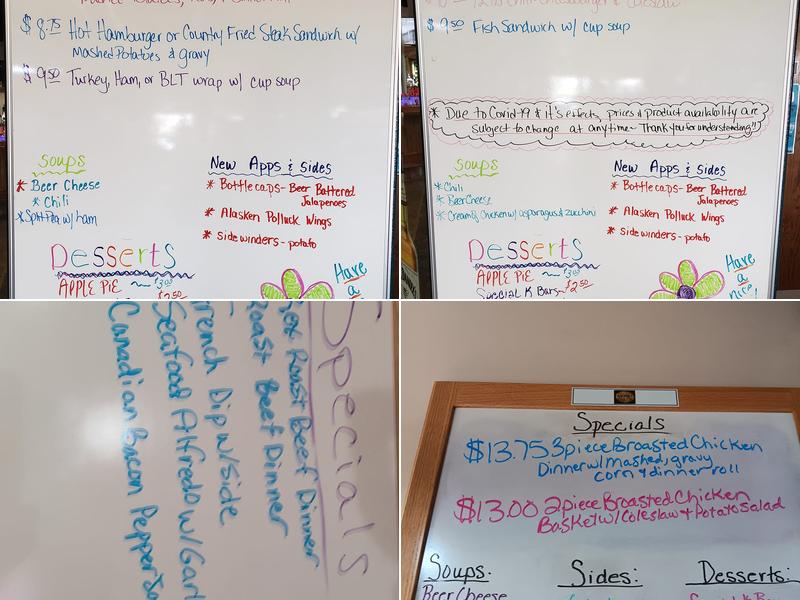 $8.75 Hot Hamburger or Country Fried Steak Sandwich w/
Mashed Potatoes & gravy
$9.50 Turkey, Ham, or BLT wrap w/ cup soup
Soups
* Beer Cheese
* Chili
* Split Pea w/ ham
New Apps & Sides
* Bottlecaps- Beer Battered
Jalapenoes
* Alasken Polluck Wings
* Sidewinders - potato
Desserts
APPLE PIE ~ $3.00
$2.50
Have
a
$9.50 Fish Sandwich w/ cup soup
* Due to Covid-19 & it's effects, prices & product availability are
subject to change at anytime~ Thank you for understanding!!
Soups
* Chili
* Beer Cheese
* Cream of Chicken w/ asparagus & zucchini
New Apps & Sides
* Bottlecaps- Beer Battered
Jalapenoes
* Alasken Polluck Wings
* Sidewinders - potato
Desserts
APPLE PIE ~ $3.00
Special K Bars ~ $2.50
Have
a
nice
Specials
Roast Beef Dinner
Roast Beef Dinner
French Dip w/side
Seafood Alfredo w/ Garl
Canadian Bacon Pepper
Specials
$13.75 3 piece Broasted Chicken
Dinner w/ mashed, gravy
corn & dinner roll
$13.00 2 piece Broasted Chicken
Basket w/ Coleslaw + Potato Salad
Soups:
Beer Cheese
Sides:
Desserts: